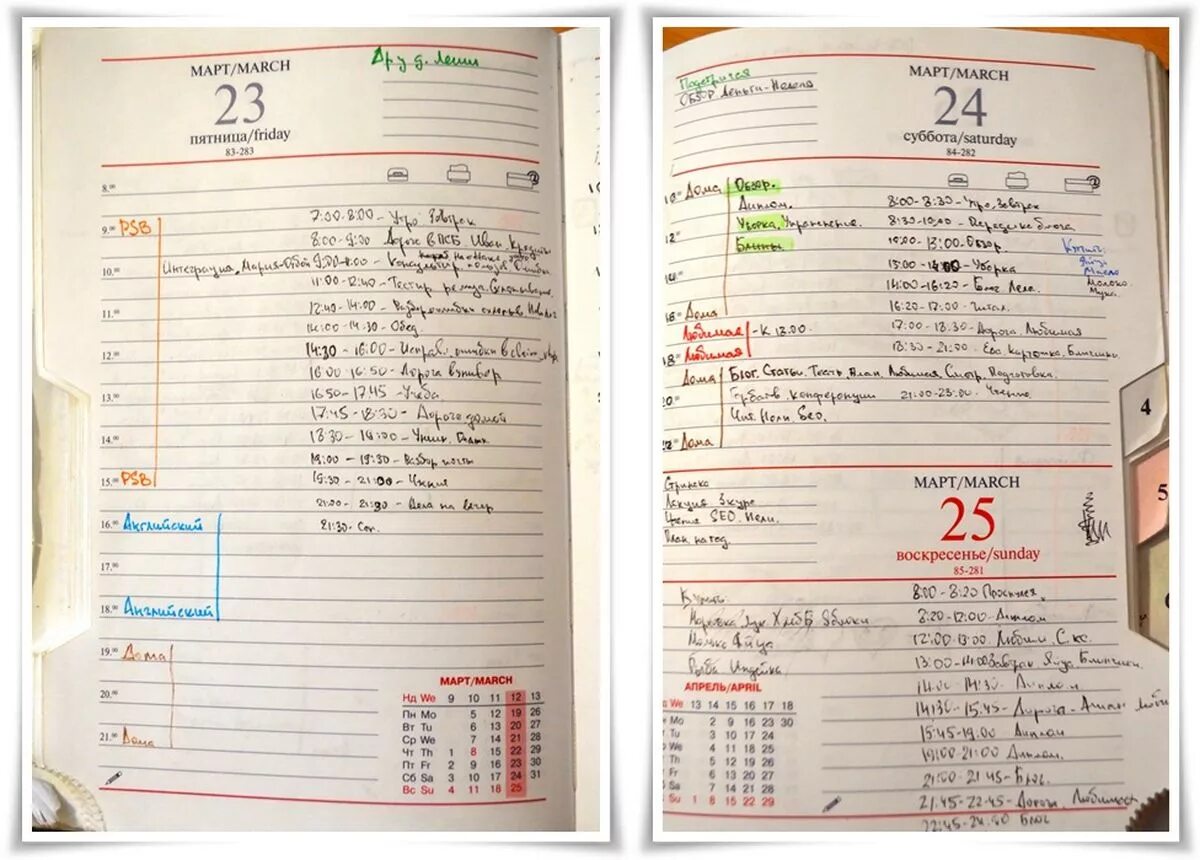 МАРТ/MARCH
23
пятница/friday
83-283
Дру д. Леши
8.00
9.00 PSB
7:00-8:00 - Утро, Завтрак
8:00 - 9:00 Дорога в ПСБ, Иван, Кредиты
10.00 Интеграция, Мария-Отбой 9:00-11:00 -
11:00 - 12:40 - Тестир
11.00
12:40 - 14:00 - Разбор ошибки
14:00 - 14:30 - Обед
12.00
14:30 - 16:00 - Исправл. ошибки в
16:00 - 16:50 - Дорога в универ
13.00
16:50 - 17:45 - Учеба
17:45 - 18:30 - Дорога домой
14.00
18:30 - 19:00 - Ужин
19:00 - 19:30 - Разбор почты
15.00 PSB
19:30 - 21:00 - Чтение
21:00 - 21:30 - Дела на вечер
16.00 Английский
21:30 - Сон.
17.00
18.00 Английский
19.00 Дома
20.00
21.00 Дома
МАРТ/MARCH
Нд We 9 10 11 12 13
Пн Mo 5 12 19 26
Вт Tu 6 13 20 27
Ср We 7 14 21 28
Чт Th 1 8 15 22 29
Пт Fr 2 9 16 23 30
Сб Sa 3 10 17 24 31
Вс Su 4 11 18 25
Подстричься
ОБЗОР Деньги - Неделя
МАРТ/MARCH
24
суббота/saturday
84-282
Дома Обзор.
Диплом.
8:00 - 8:30 - Утро, Завтрак
Уборка, Упражнения.
8:30 - 10:00 - Переделка блога
12
Блины
10:00 - 13:00 - Обзор.
Купить:
Яйца
Масло
Молоко
Мука.
13:00 - 14:00 - Уборка
14
14:00 - 16:20 - Блог, Дела.
16 Дома
16:20 - 17:00 - Читал.
Любимая - К 18.00
17:00 - 18:30 - Дорога, Любимая
18 Любимая
18:30 - 21:00 - Еда, Картошка, Блинчики
Дома Блог, Статьи, Тесты, План, Любимая, Смотр, Подготовка.
20 Горбатов, конференции 21:00-23:00 - Чтение
Чит. Нели, Seo.
22 Дома
4
5
Стрижка
Лекция 3 курс
Чтение SEO, Нели.
План на год.
МАРТ/MARCH
25
воскресенье/sunday
85-281
Купить:
8:00 - 8:20 Проснулся,
Морковка Лук Хлеб Яблоки
8:20 - 12:00 - Диплом
Яйца
12:00 - 13:00 Любим.
Рыба Индейка
13:00 - 14:00 Завтрак, Яйца, Блинчики
14:00 - 14:30 - Диплом
14:30 - 15:45 - Дорога -
15:45 - 19:00 Диплом
19:00 - 21:00 - Диплом.
21:00 - 21:45 - Блог
21:45 - 22:45 - Дорога, Любимая
22:45 - Блог
АПРЕЛЬ/APRIL
We 13 14 15 16 17 18
Mo 2 9 16 23 30
Tu 3 10 17 24
We 4 11 18 25
Th 5 12 19 26
Fr 6 13 20 27
Sa 7 14 21 28
Su 1 8 15 22 29